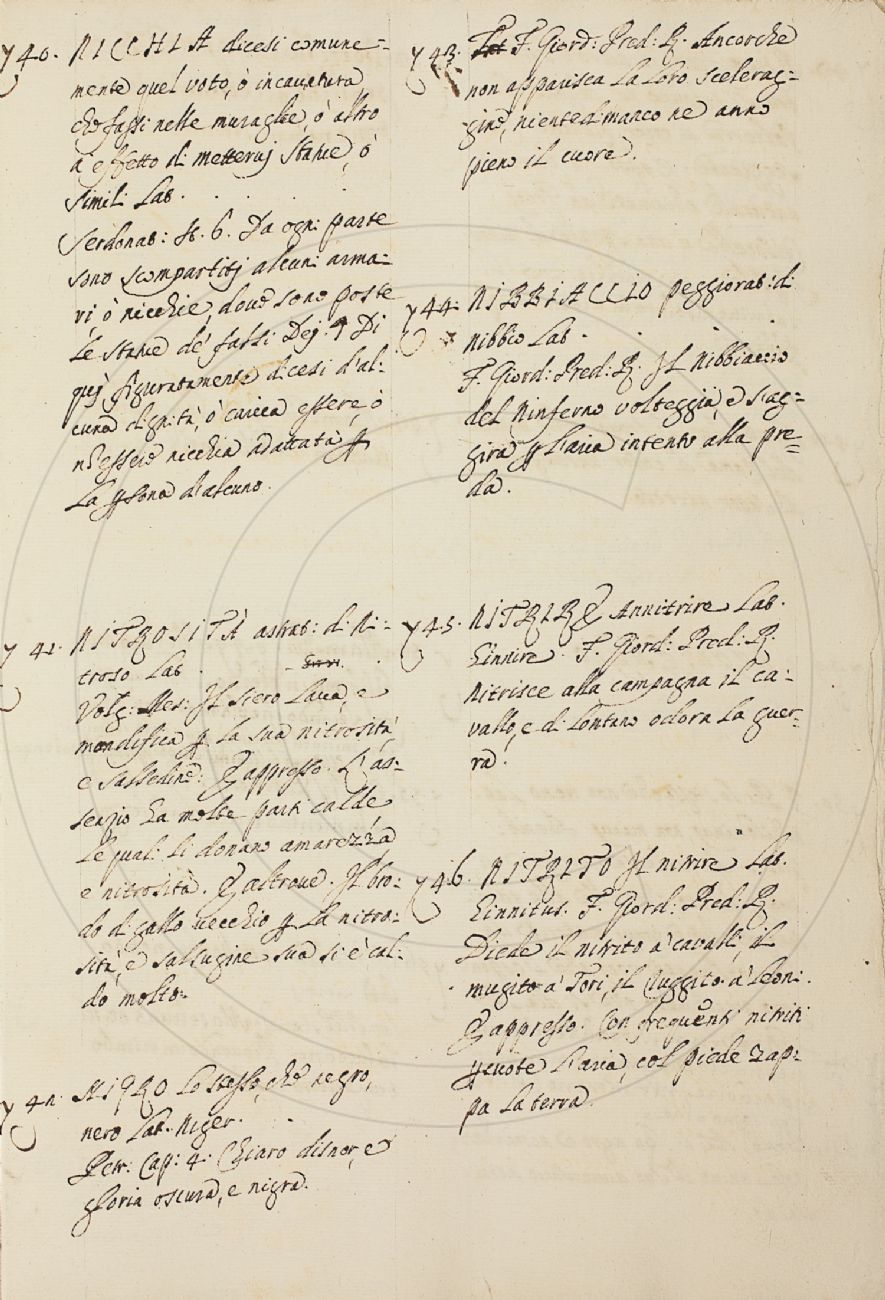 740. NICCHIA dicesi comune=
mente quel voto, ò incavatura
che fassi nelle muraglie, ò altro
a effetto di mettervj Statue, ò
simili Lat.
Serdonat: St. 6. Da ogni parte
sono scompartitj alcuni arma=
ri ò nicchie, dove sono poste
Le Statue de' falsi Dej. ¶ Di
quj figuratamente dicesi d'al:
cuna dignità, ò carica essere, ò
n̄ essere nicchia adattata ꝑ
La ꝑsona d'alcuno.
741. NITROSITÀ astrat: di Ni:
troso Lat.
Volg: Mes: Jl siero Lava, e
mondifica ꝑ la sua nitrosità,
e salsedine: E appresso. L'as=
senzio ha molte parti calde
Le quali li donano amarezza
e nitrosità. E altrove. Jl bro:
do di gallo vecchio ꝑ la nitro:
sità, e salsugine sua si è cal:
do molto.
742. NIGRO Lo stesso, che negro,
nero Lat. Niger.
Petr: Cap: 4. Chiaro disnor, e
gloria oscura, e nigra.
743. F. Giord: Pred: R. Ancorche
non apparisca La Loro scelerag=
gine, nientedimanco ne anno
pieno il cuore.
744. NIBBIACCIO peggiorat: di
nibbio Lat.
F. Giord: Pred: R. Jl Nibbiaccio
del Ninferno volteggia, e s'ag=
gira ꝑ L'aria intento alla pre=
da.
745. NITRIRE Annitrire Lat.
hinnire. F. Giord: Pred: R.
Nitrisce alla campagna il ca:
vallo, e di Lontano odora La guer=
ra.
746. NITRITO Jl nitrire Lat.
hinnitus. F. Giord: Pred: R.
Diede il nitrito a' cavalli, il
mugito a' Tori, il Ruggito a' Leoni.
E appresso. Con frequenti nitriti
ꝑcuote L'aria, col piede zap=
pa La terra.